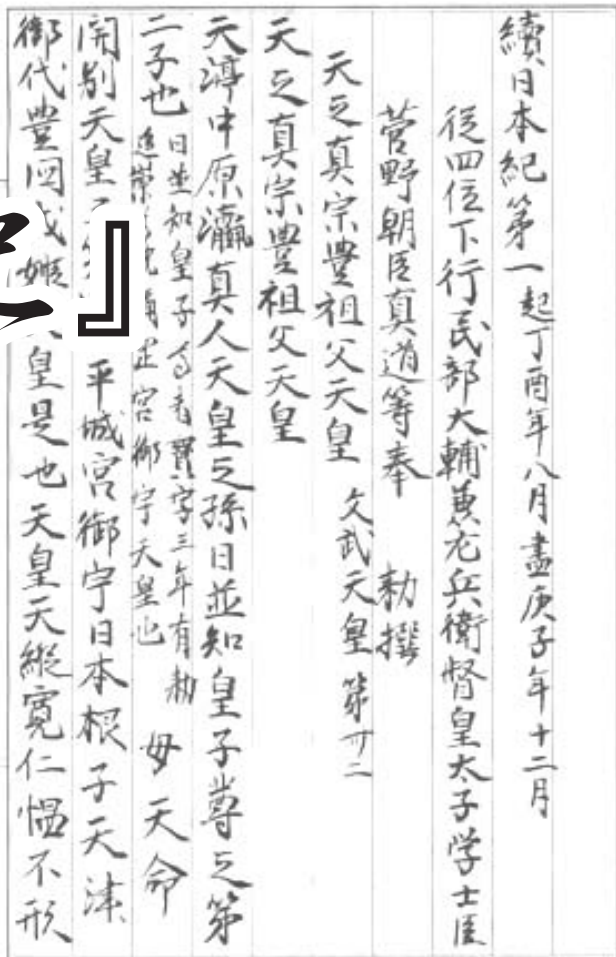 續日本紀第一 起丁酉年八月盡庚子年十二月
従四位下行民部大輔兼左兵衛督皇太子学士臣
菅野朝臣真道等奉 勅撰
天之真宗豊祖父天皇 文武天皇 第卌二
天之真宗豊祖父天皇
天渟中原瀛真人天皇之孫日並知皇子尊之第
二子也 日並知皇子尊者寶字三年有勅
追崇 宮御宇天皇也 母天命
開別天皇之 平城宮御宇日本根子天津
御代豊国成姫天皇是也天皇天縦寛仁慍不形
』